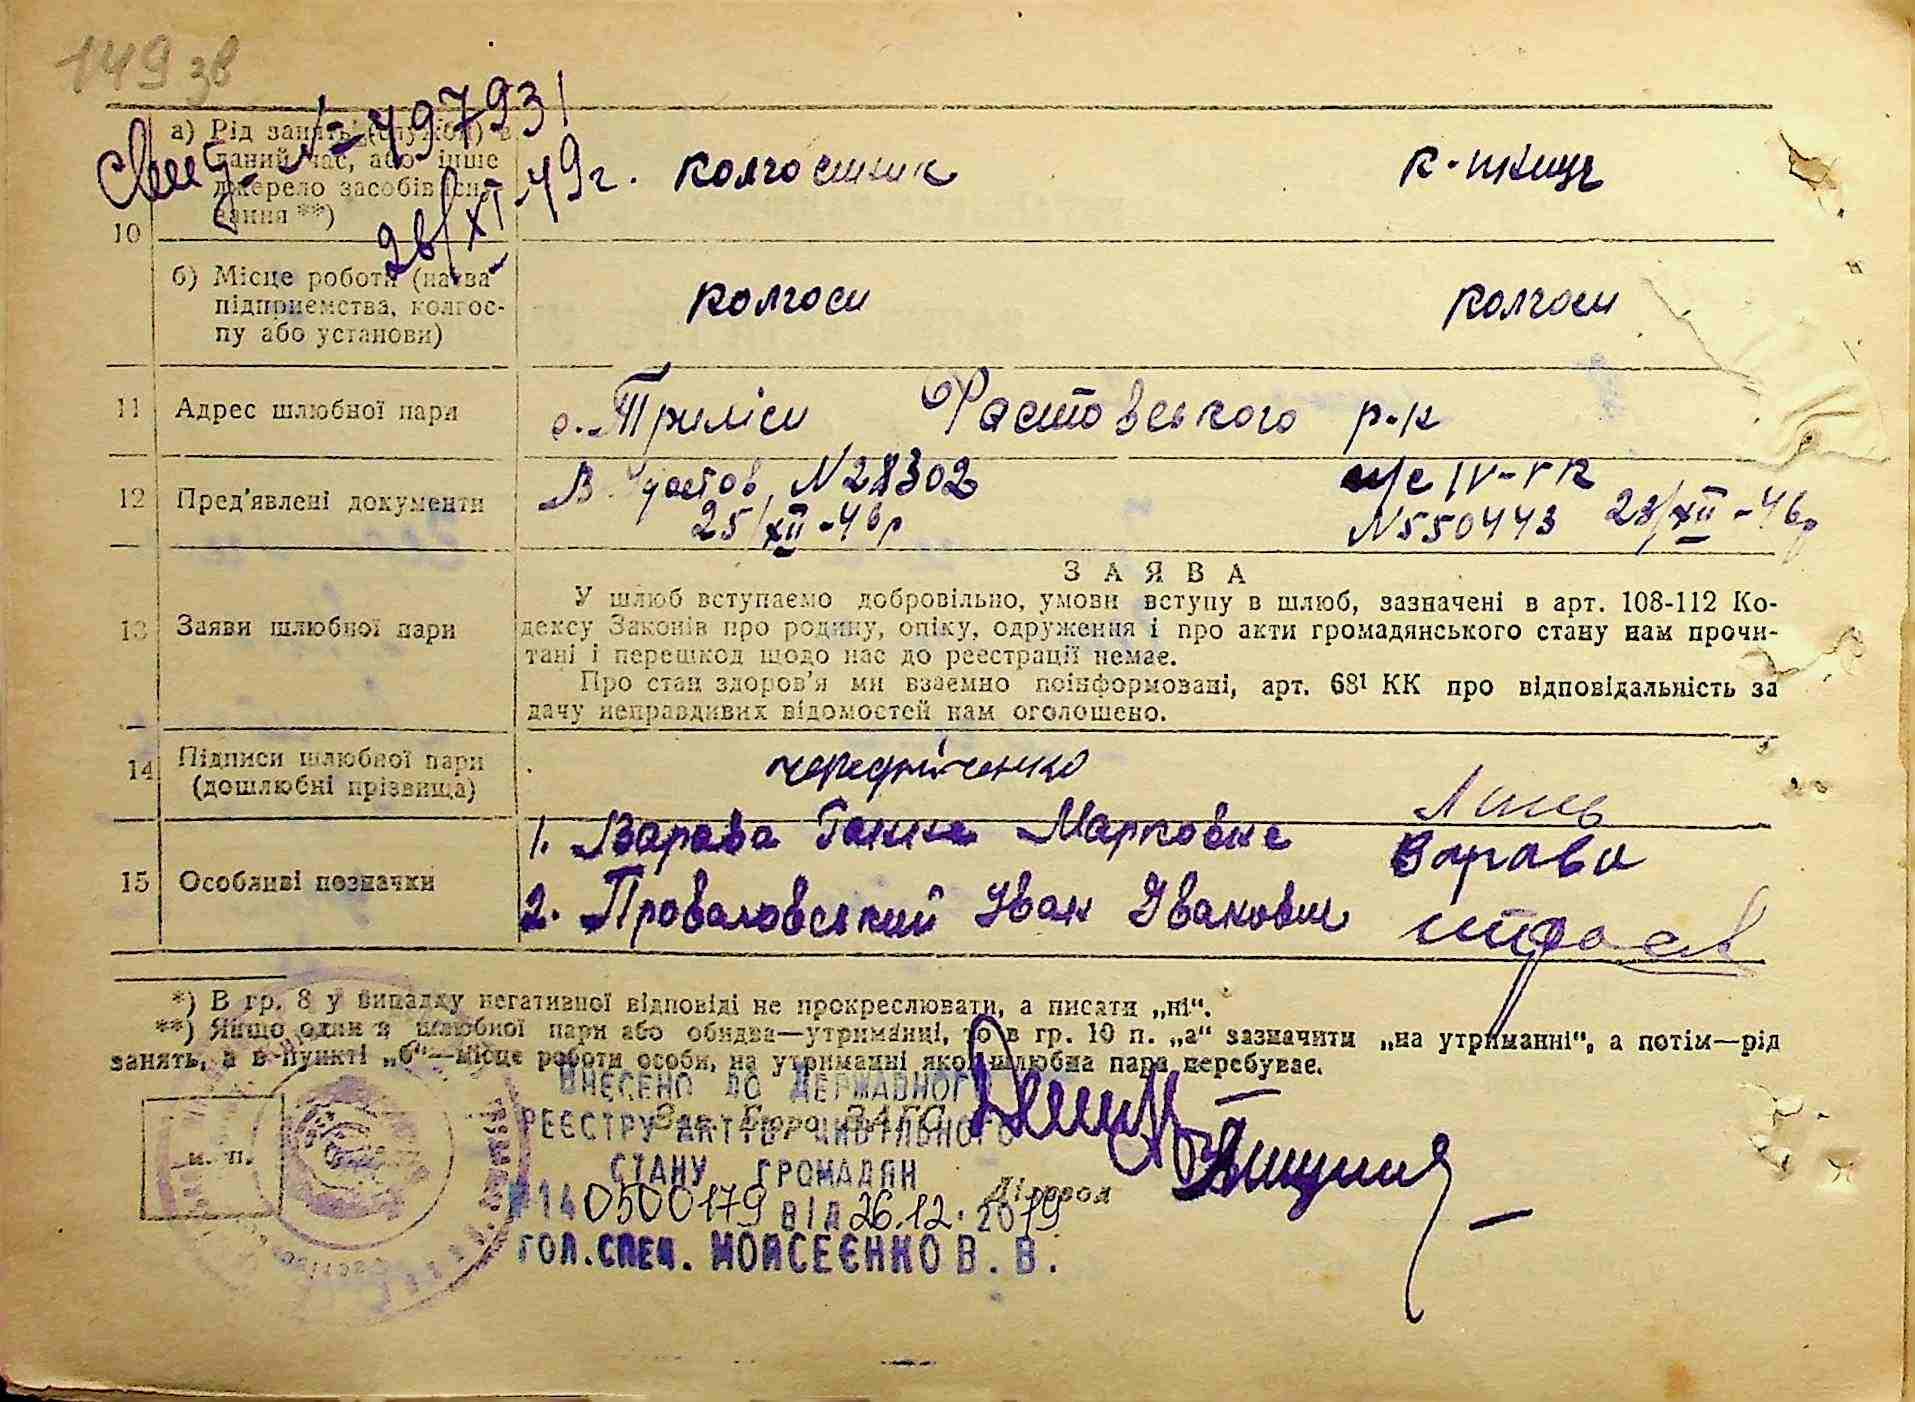 149 зв
Свид. № 497931
26/XI-49г.
10
а) Рід занять (служби) в
даний час, або інше
джерело засобів існу-
вання **)
колгоспник к-пниця
б) Місце роботи (назва
підприємства, колгос-
пу або установи)
колгосп колгосп
11 Адрес шлюбної пари
с. Триліси Фастовського р-н
12 Пред'явлені документи
В. Фастов. N 28302
25/XII-46р
п/с IV-УК
N 550443 28/XII-46р
13 Заяви шлюбної пари
ЗАЯВА
У шлюб вступаємо добровільно, умови вступу в шлюб, зазначені в арт. 108-112 Ко-
дексу Законів про родину, опіку, одруження і про акти громадянського стану нам прочи-
тані і перешкод щодо нас до реєстрації немає.
Про стан здоров'я ми взаємно поінформовані, арт. 68¹ КК про відповідальність за
дачу неправдивих відомостей нам оголошено.
14 Підписи шлюбної пари
(дошлюбні прізвища)
чередніченко
15 Особливі позначки
1. Варава Ганна Марковна Варава
2. Проваловський Іван Іванович
*) В гр. 8 у випадку негативної відповіді не прокреслювати, а писати „ні“.
**) Якщо один з шлюбної пари або обидва—утриманці, то в гр. 10 п. „а“ зазначити „на утриманні“, а потім—рід
занять, а в пункті „б“—місце роботи особи, на утриманні якої шлюбна пара перебуває.
Зав. Бюро ЗАГС
м. п.
Діловод
ВНЕСЕНО ДО ДЕРЖАВНОГО
РЕЄСТРУ АКТІВ ЦИВІЛЬНОГО
СТАНУ ГРОМАДЯН
№140500179 ВІД 26.12.2019
ГОЛ.СПЕЦ. МОЙСЕЄНКО В. В.